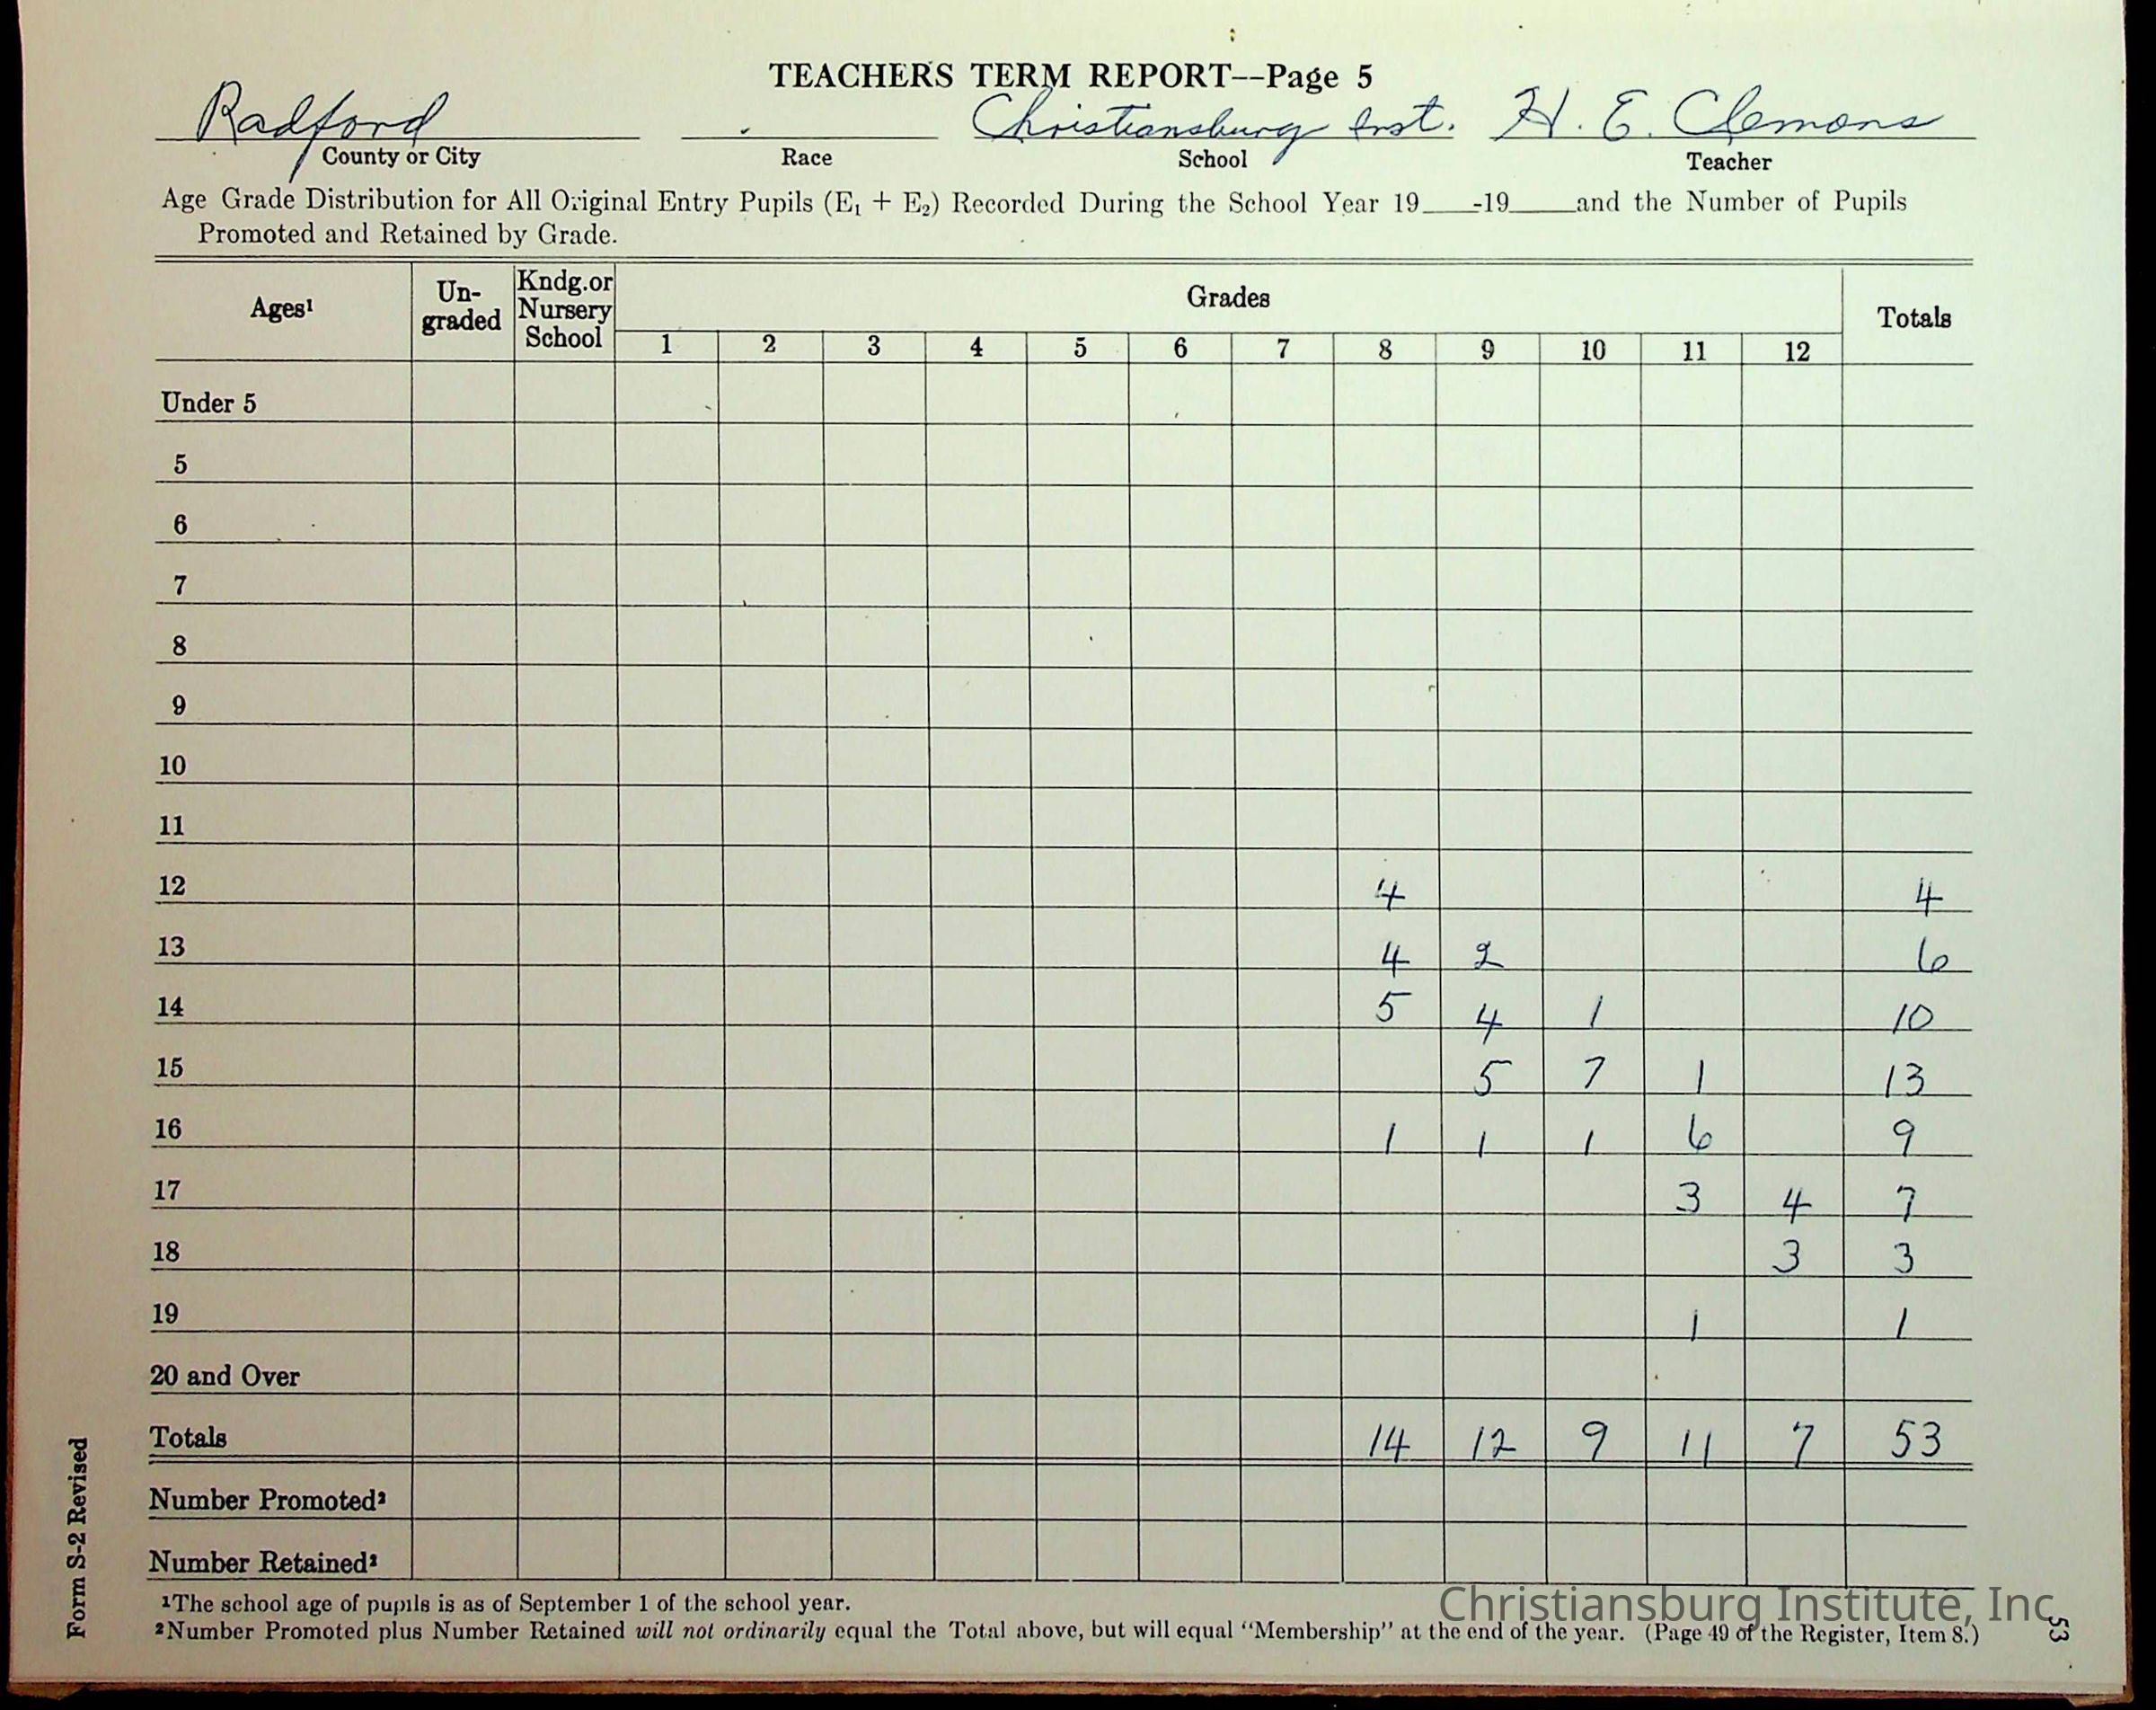 TEACHERS TERM REPORT--Page 5
Radford Christiansburg Inst. H. E. Clemons
County or City Race School Teacher
Age Grade Distribution for All Original Entry Pupils (E₁ + E₂) Recorded During the School Year 19____-19____and the Number of Pupils
Promoted and Retained by Grade.
Ages¹ Un-graded Kndg.or Nursery School Grades Totals
1 2 3 4 5 6 7 8 9 10 11 12
Under 5
5
6
7
8
9
10
11
12 4 4
13 4 2 6
14 5 4 1 10
15 5 7 1 13
16 1 1 1 6 9
17 3 4 7
18 3 3
19 1 1
20 and Over
Totals 14 12 9 11 7 53
Number Promoted²
Number Retained²
¹The school age of pupils is as of September 1 of the school year.
²Number Promoted plus Number Retained will not ordinarily equal the Total above, but will equal “Membership” at the end of the year. (Page 49 of the Register, Item 8.)
Form S-2 Revised
53
Christiansburg Institute, Inc